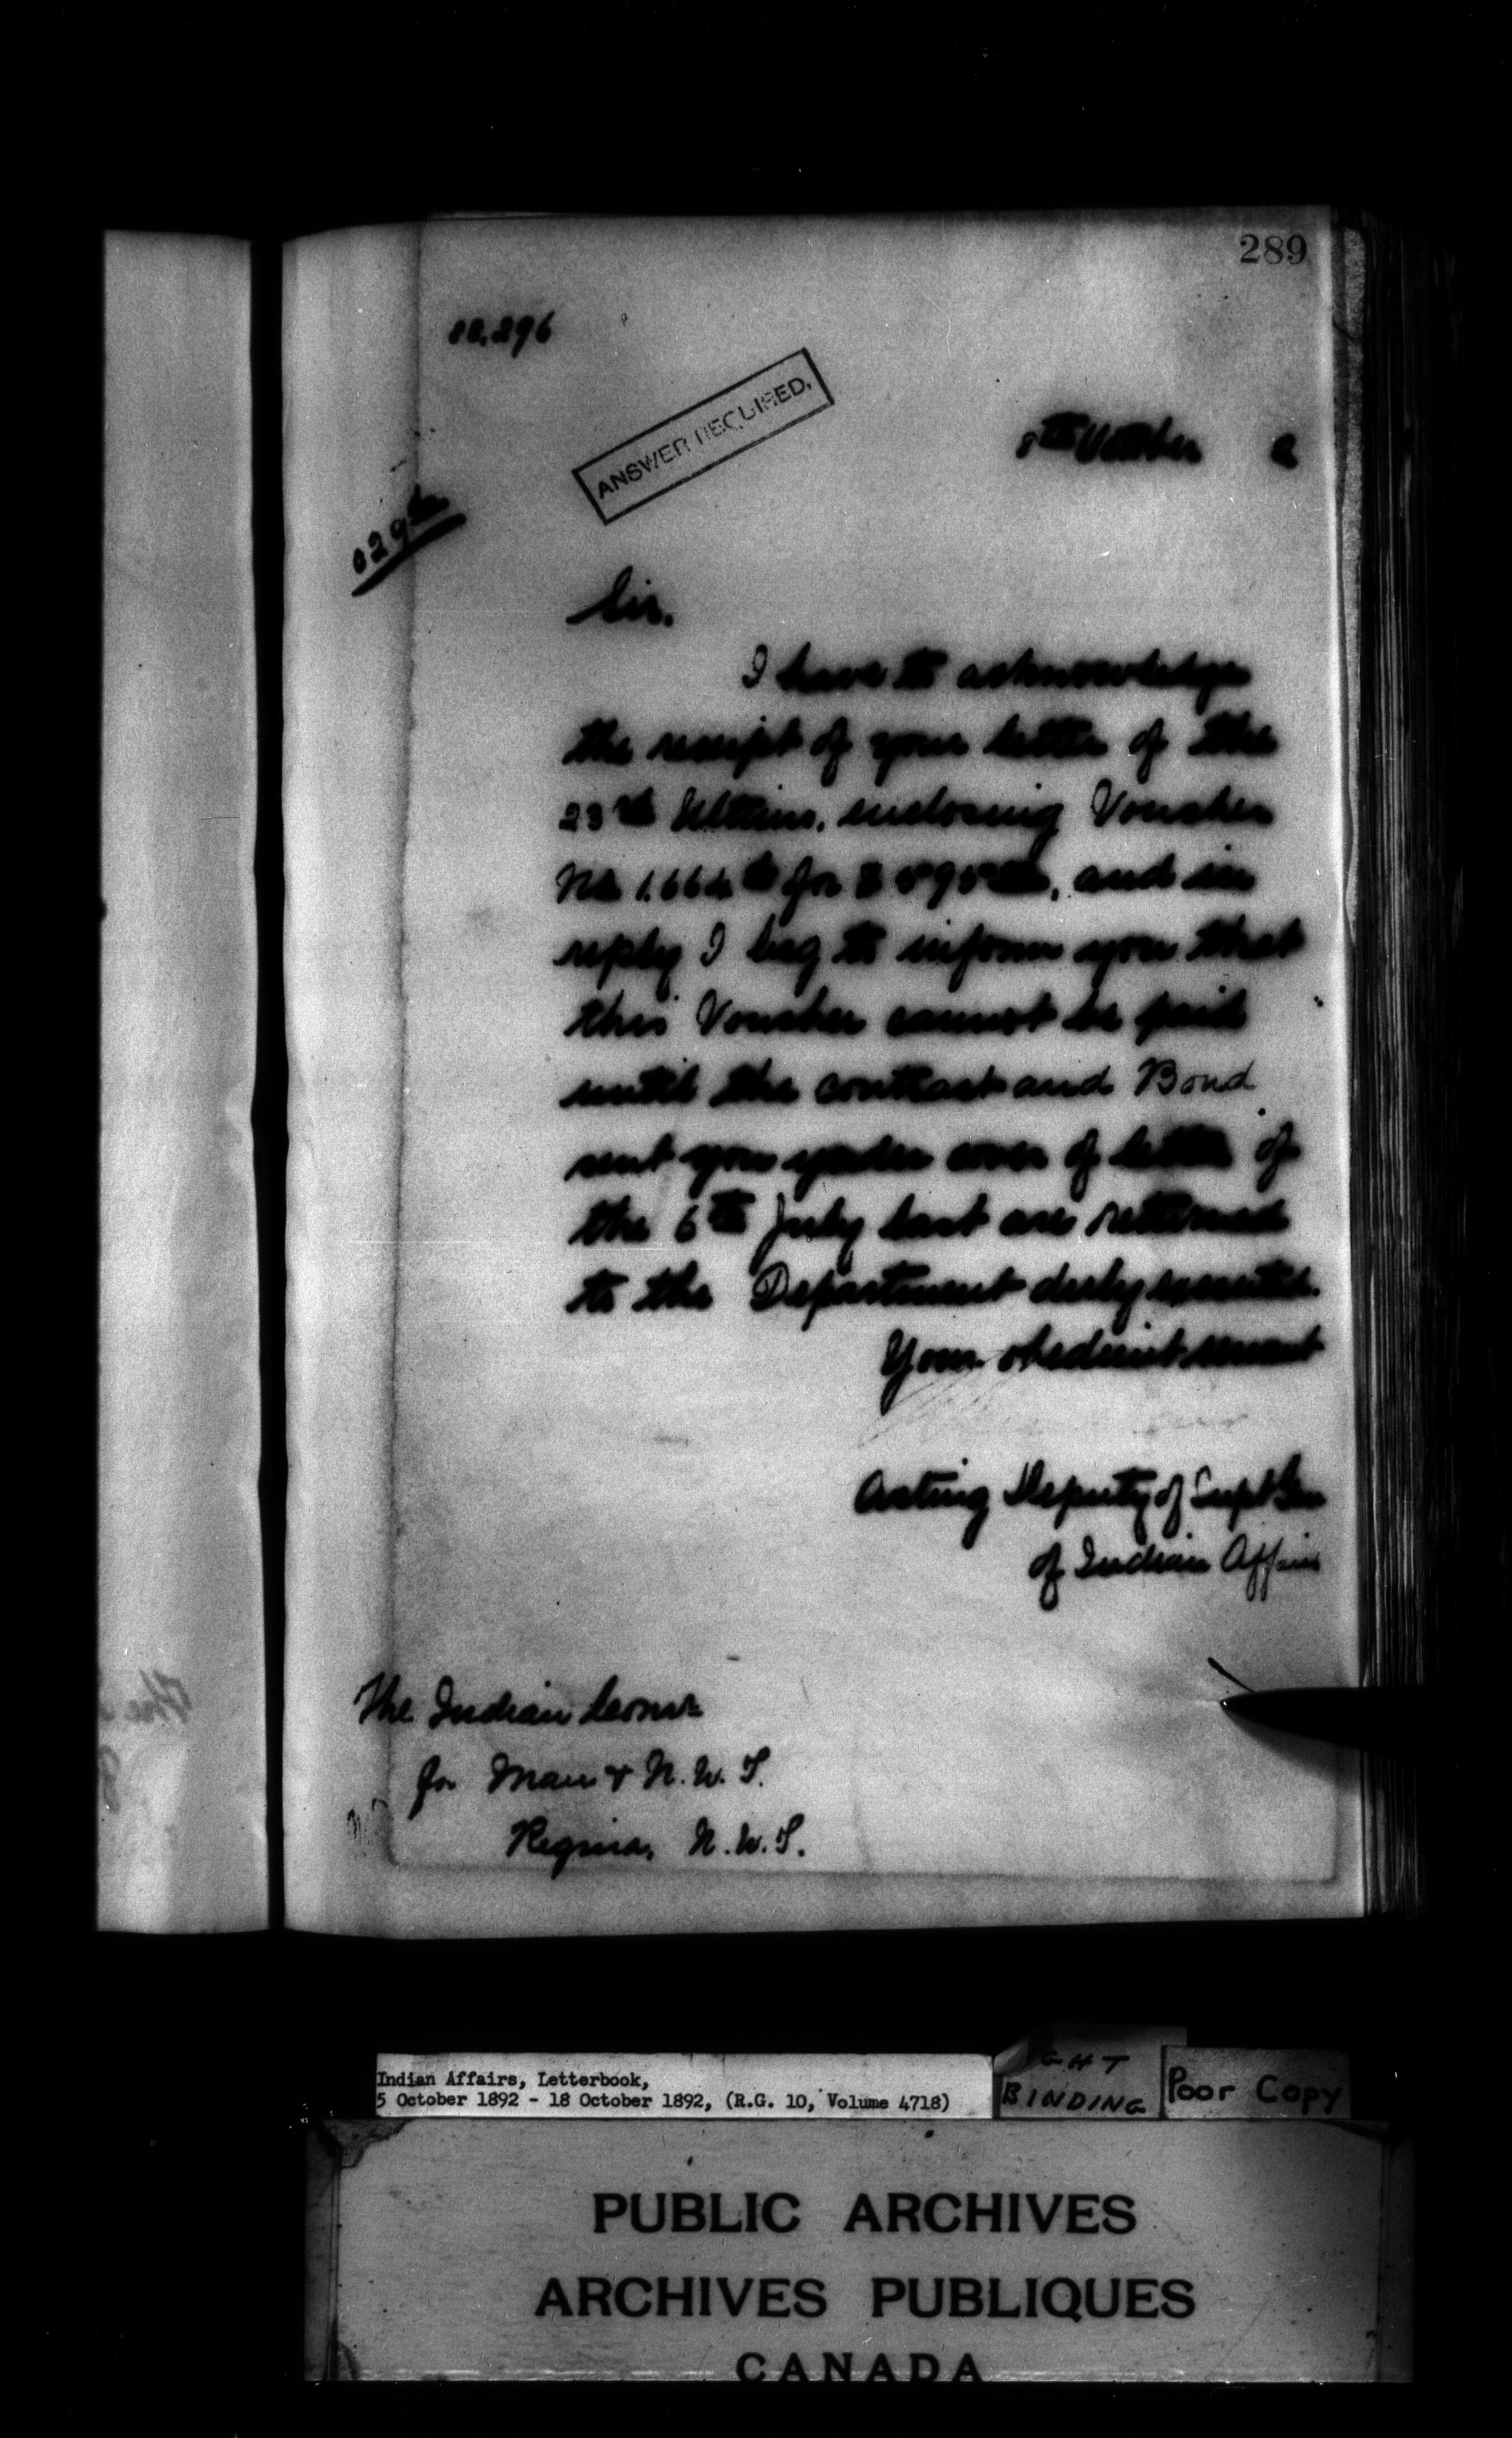 289
ANSWER REQUIRED.
8th October 2
Sir.
I have to acknowledge
the receipt of your letter of the
23rd Ultimo, enclosing Voucher
No for and in
reply I beg to inform you that
this Voucher cannot be paid
until the contract and Bond
sent you under cover of letter of
the 6th July last are returned
to the Department duly executed.
Your obedient servant
Acting Deputy of Supt Gen
of Indian Affairs
The Indian Comr
for Man & N.W.T.
Regina, N.W.T.
Indian Affairs, Letterbook,
5 October 1892 - 18 October 1892, (R.G. 10, Volume 4718)
BINDING
Poor Copy
PUBLIC ARCHIVES
ARCHIVES PUBLIQUES
CANADA